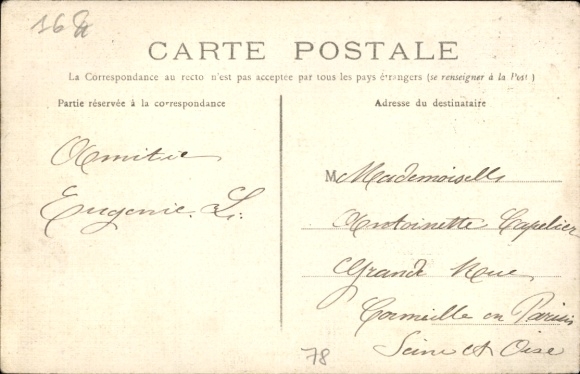 CARTE POSTALE
La Correspondance au recto n'est pas acceptée par tous les pays étrangers (se renseigner à la Post )
Partie réservée à la correspondance
Adresse du destinataire
Amitié
Eugenie. L.
M Mademoiselle
Antoinette Capelier
Grande Rue
Cormeille en Parisis
Seine et Oise
78